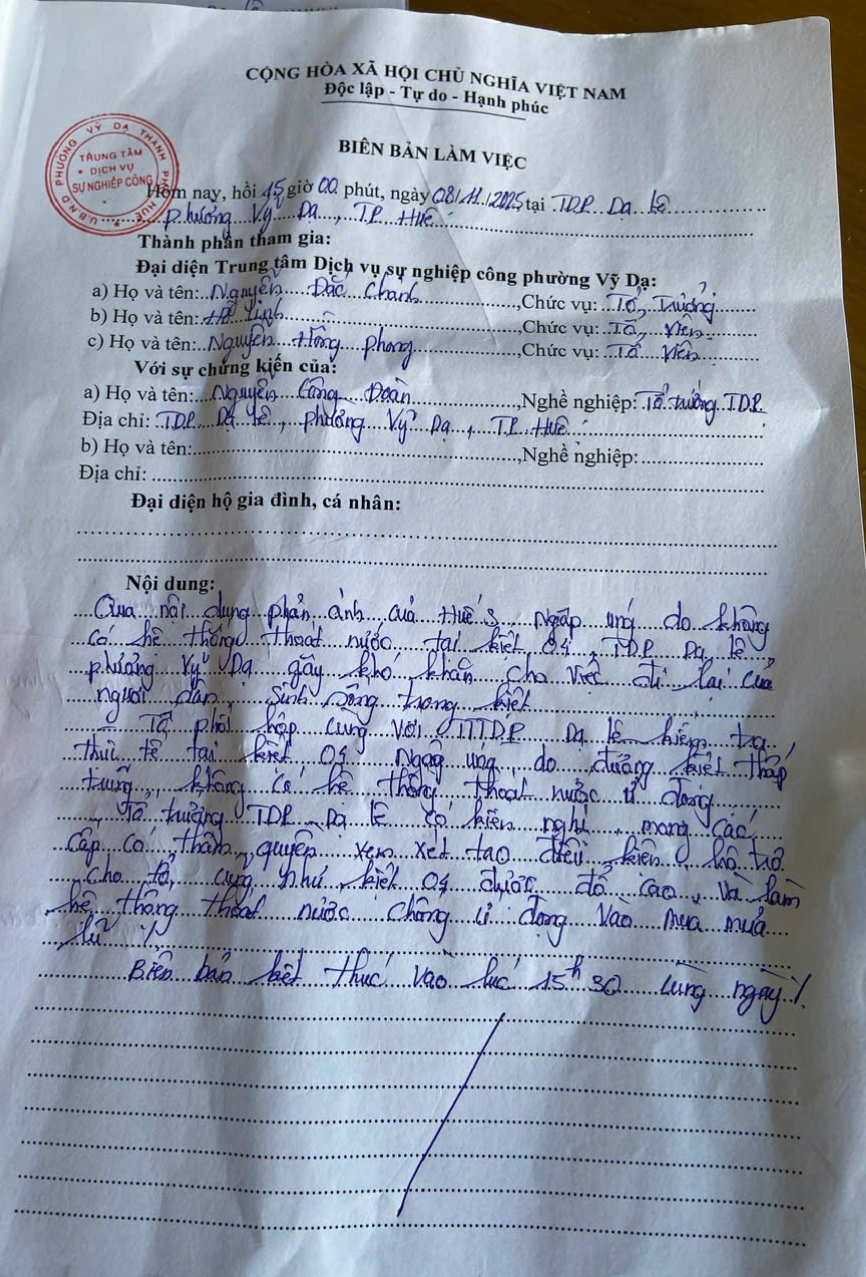 CỘNG HÒA XÃ HỘI CHỦ NGHĨA VIỆT NAM
Độc lập - Tự do - Hạnh phúc
BIÊN BẢN LÀM VIỆC
U.B.N.D PHƯỜNG VỸ DẠ THÀNH PHỐ HUẾ
TRUNG TÂM
DỊCH VỤ
SỰ NGHIỆP CÔNG
Hôm nay, hồi 15 giờ 00 phút, ngày 08/11/2025 tại TDP Dạ Lê
phường Vỹ Dạ, TP. Huế.
Thành phần tham gia:
Đại diện Trung tâm Dịch vụ sự nghiệp công phường Vỹ Dạ:
a) Họ và tên: Nguyễn Đắc Chánh, Chức vụ: Tổ Trưởng
b) Họ và tên: Lịnh, Chức vụ: Tổ Viên
c) Họ và tên: Nguyễn Hồng Phong, Chức vụ: Tổ Viên
Với sự chứng kiến của:
a) Họ và tên: Nguyễn Công Đoàn, Nghề nghiệp: Tổ trưởng TDP.
Địa chỉ: TDP Dạ Lê, phường Vỹ Dạ, TP. Huế.
b) Họ và tên:, Nghề nghiệp:
Địa chỉ:
Đại diện hộ gia đình, cá nhân:
Nội dung:
Qua nội dung phản ánh của Huế S. Ngập úng do không
có hệ thống thoát nước tại kiệt 04, TDP Dạ Lê,
phường Vỹ Dạ gây khó khăn cho việc đi lại của
người dân sinh sống trong kiệt
Tổ phối hợp cùng với TTTDP Dạ Lê kiểm tra,
thực tế tại kiệt 04. Ngập úng do đường kiệt thấp
trũng, không có hệ thống thoát nước ứ đọng
Tổ trưởng TDP Dạ Lê có kiến nghị, mong các
cấp có thẩm quyền xem xét tạo điều kiện hỗ trợ
cho tổ, cũng như kiệt 04 được đổ cao, và làm
hệ thống thoát nước chống ứ đọng vào mùa mưa
lũ ./.
Biên bản kết thúc vào lúc 15h 30 cùng ngày ./.